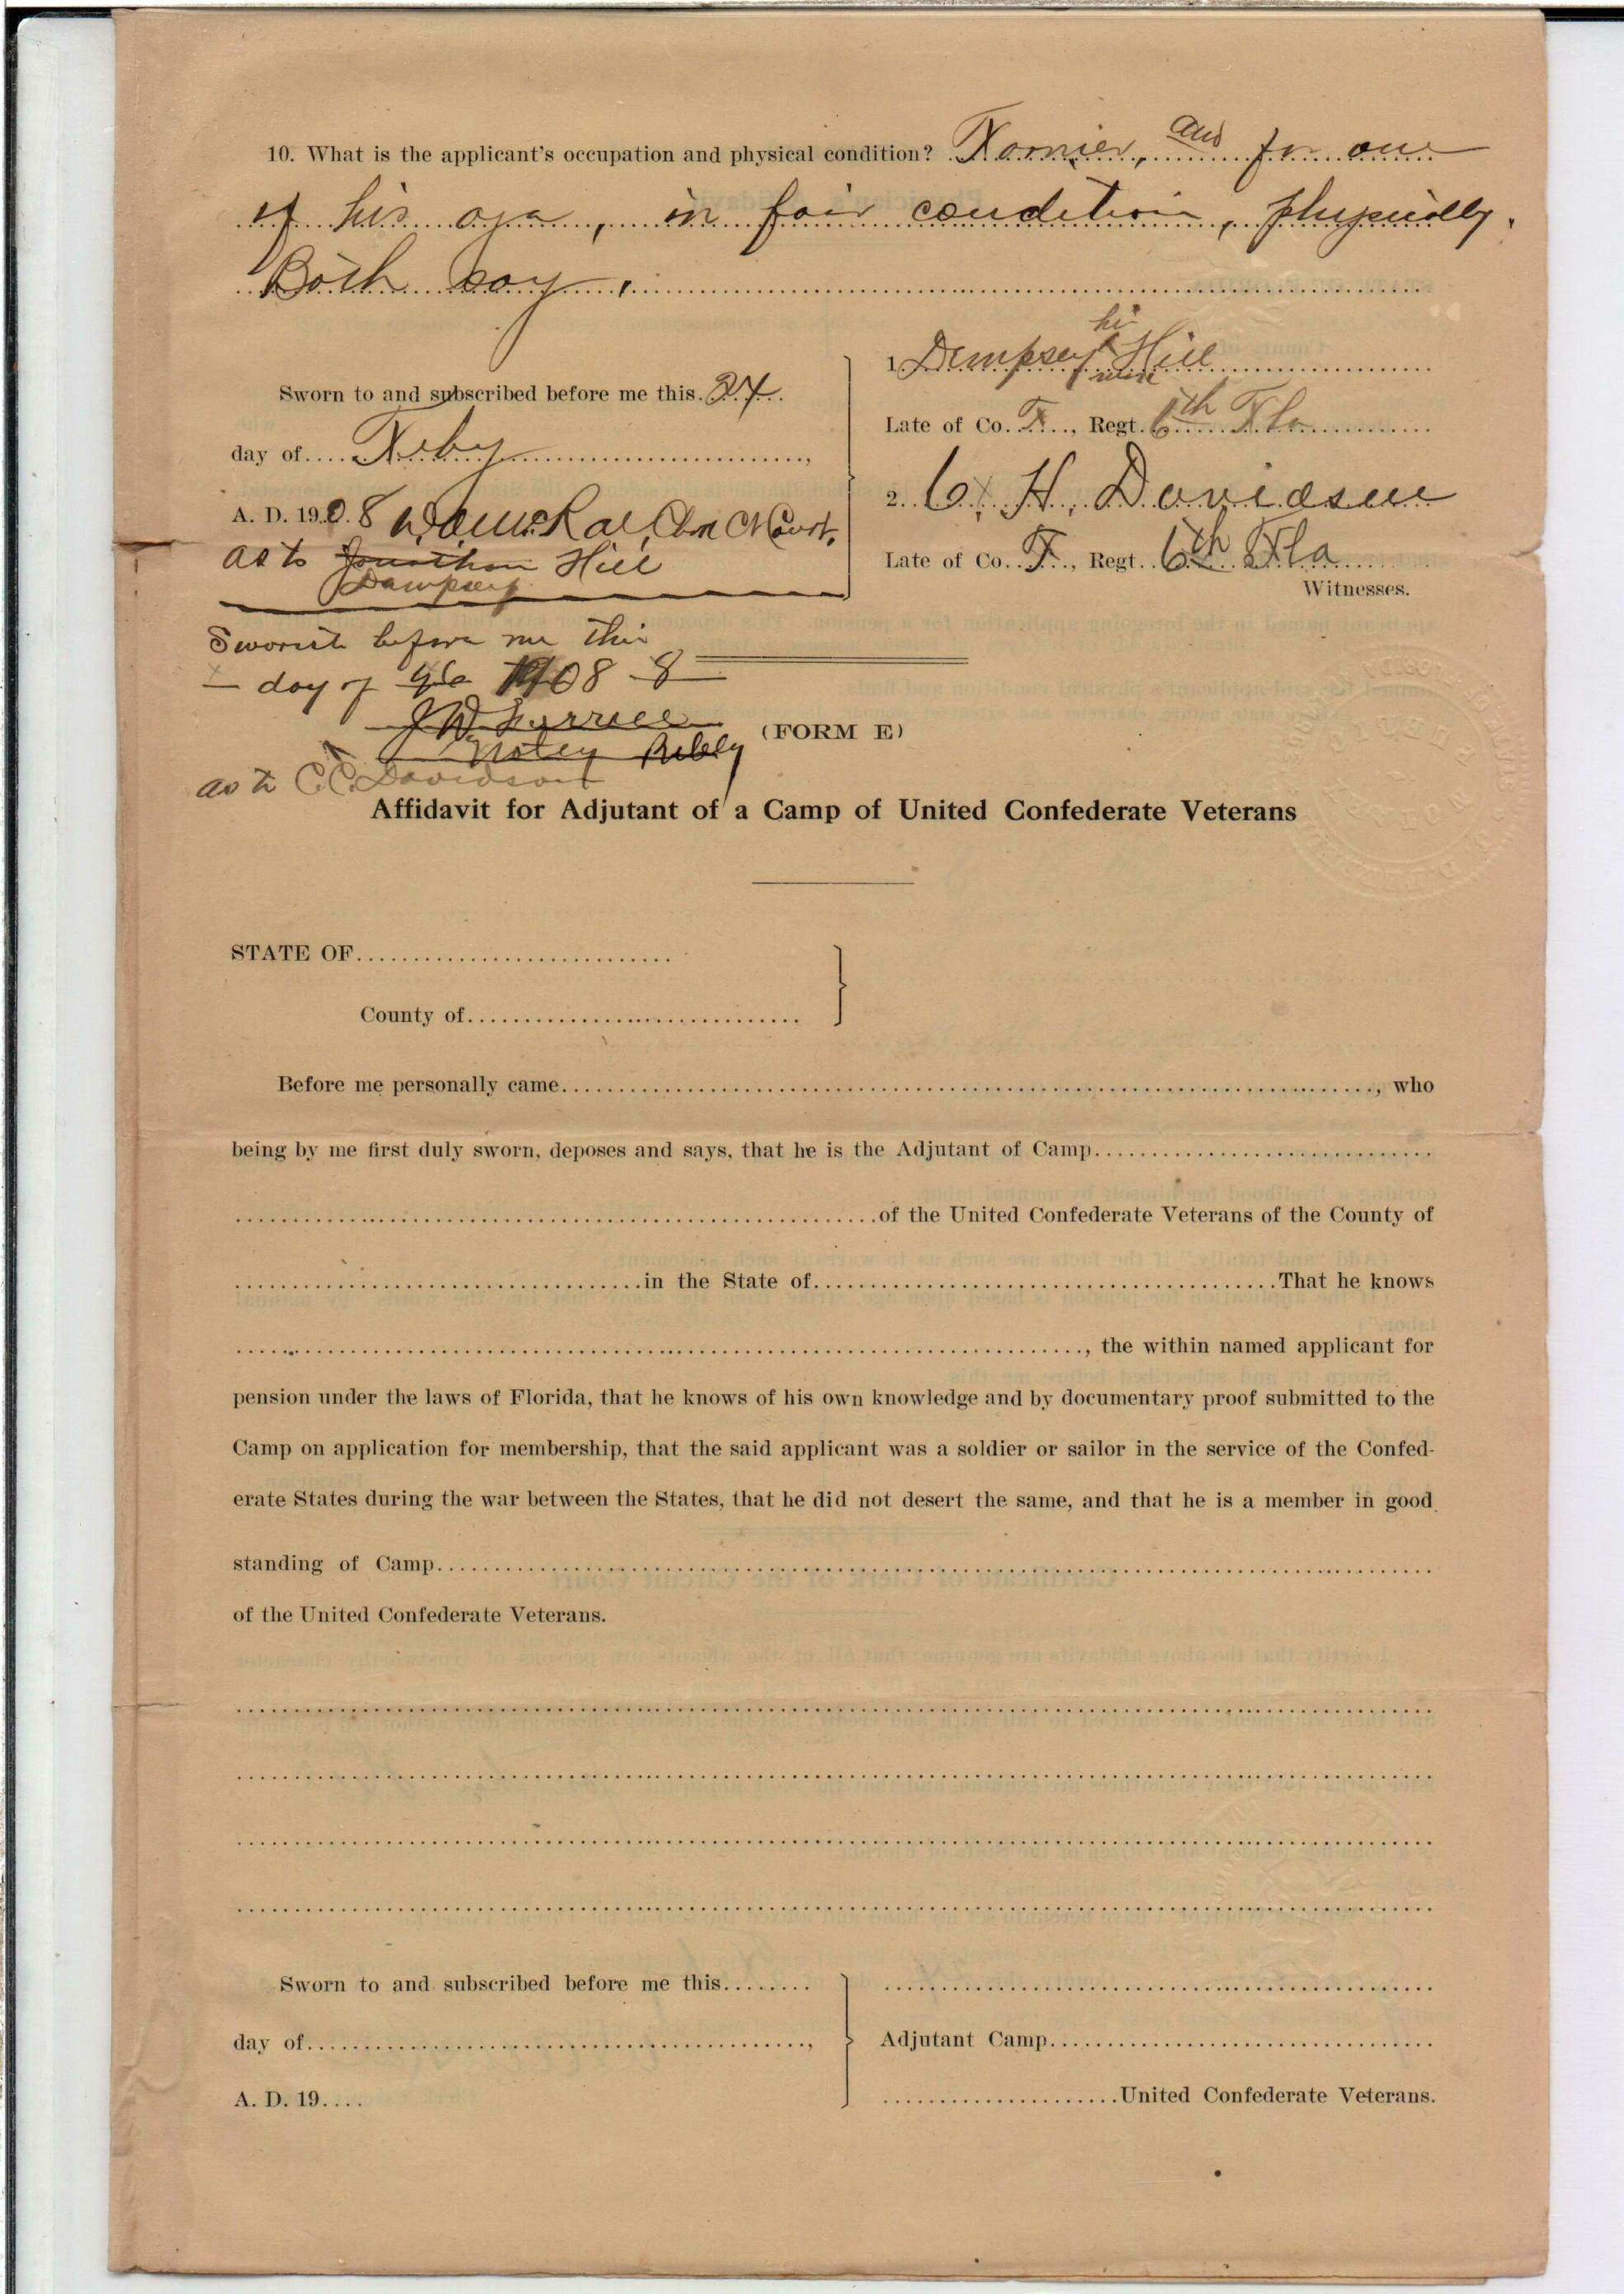 10. What is the applicant's occupation and physical condition? Farmer, and for one
of his age, in fair condition, physically.
Both say,
Sworn to and subscribed before me this 24
day of Feby,
A. D. 1908 Court.
as to Jonathan Hill
Dempsey
his
1 Dempsey X Hill
mark
Late of Co. F., Regt. 6th Fla
2. C. H. Davidson
Late of Co. F., Regt. 6th Fla
Witnesses.
Sworn to before me this
day of 1908 8
Notry Public
as to C. C. Davidson
(FORM E)
Affidavit for Adjutant of a Camp of United Confederate Veterans
STATE OF
County of
Before me personally came, who
being by me first duly sworn, deposes and says, that he is the Adjutant of Camp
of the United Confederate Veterans of the County of
in the State of That he knows
, the within named applicant for
pension under the laws of Florida, that he knows of his own knowledge and by documentary proof submitted to the
Camp on application for membership, that the said applicant was a soldier or sailor in the service of the Confed-
erate States during the war between the States, that he did not desert the same, and that he is a member in good
standing of Camp
of the United Confederate Veterans.
Sworn to and subscribed before me this
day of,
A. D. 19
Adjutant Camp
United Confederate Veterans.